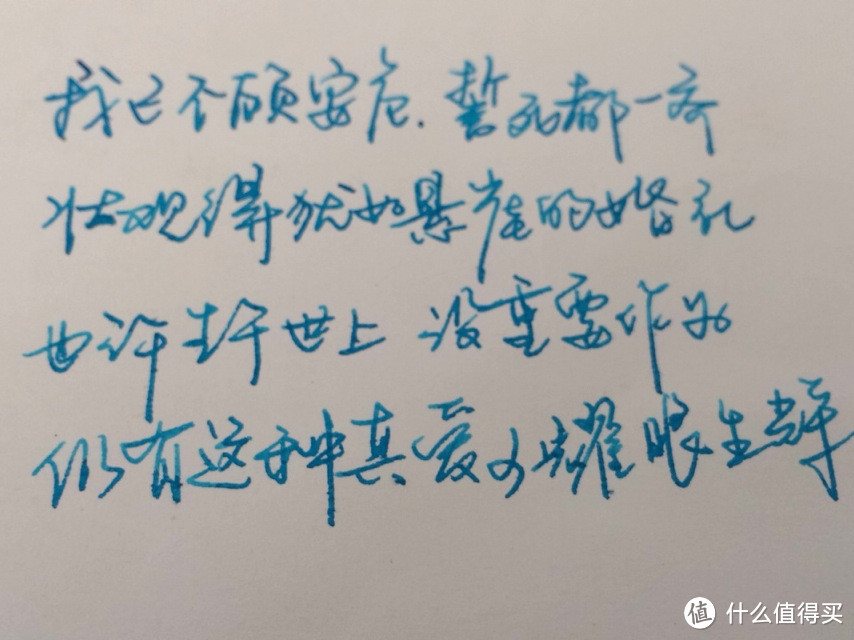 我已不顾安危.誓死都一齐
壮观得犹如悬崖的婚礼
也许生于世上 没重要作为
仍有这种真爱可耀眼生辉
值 什么值得买